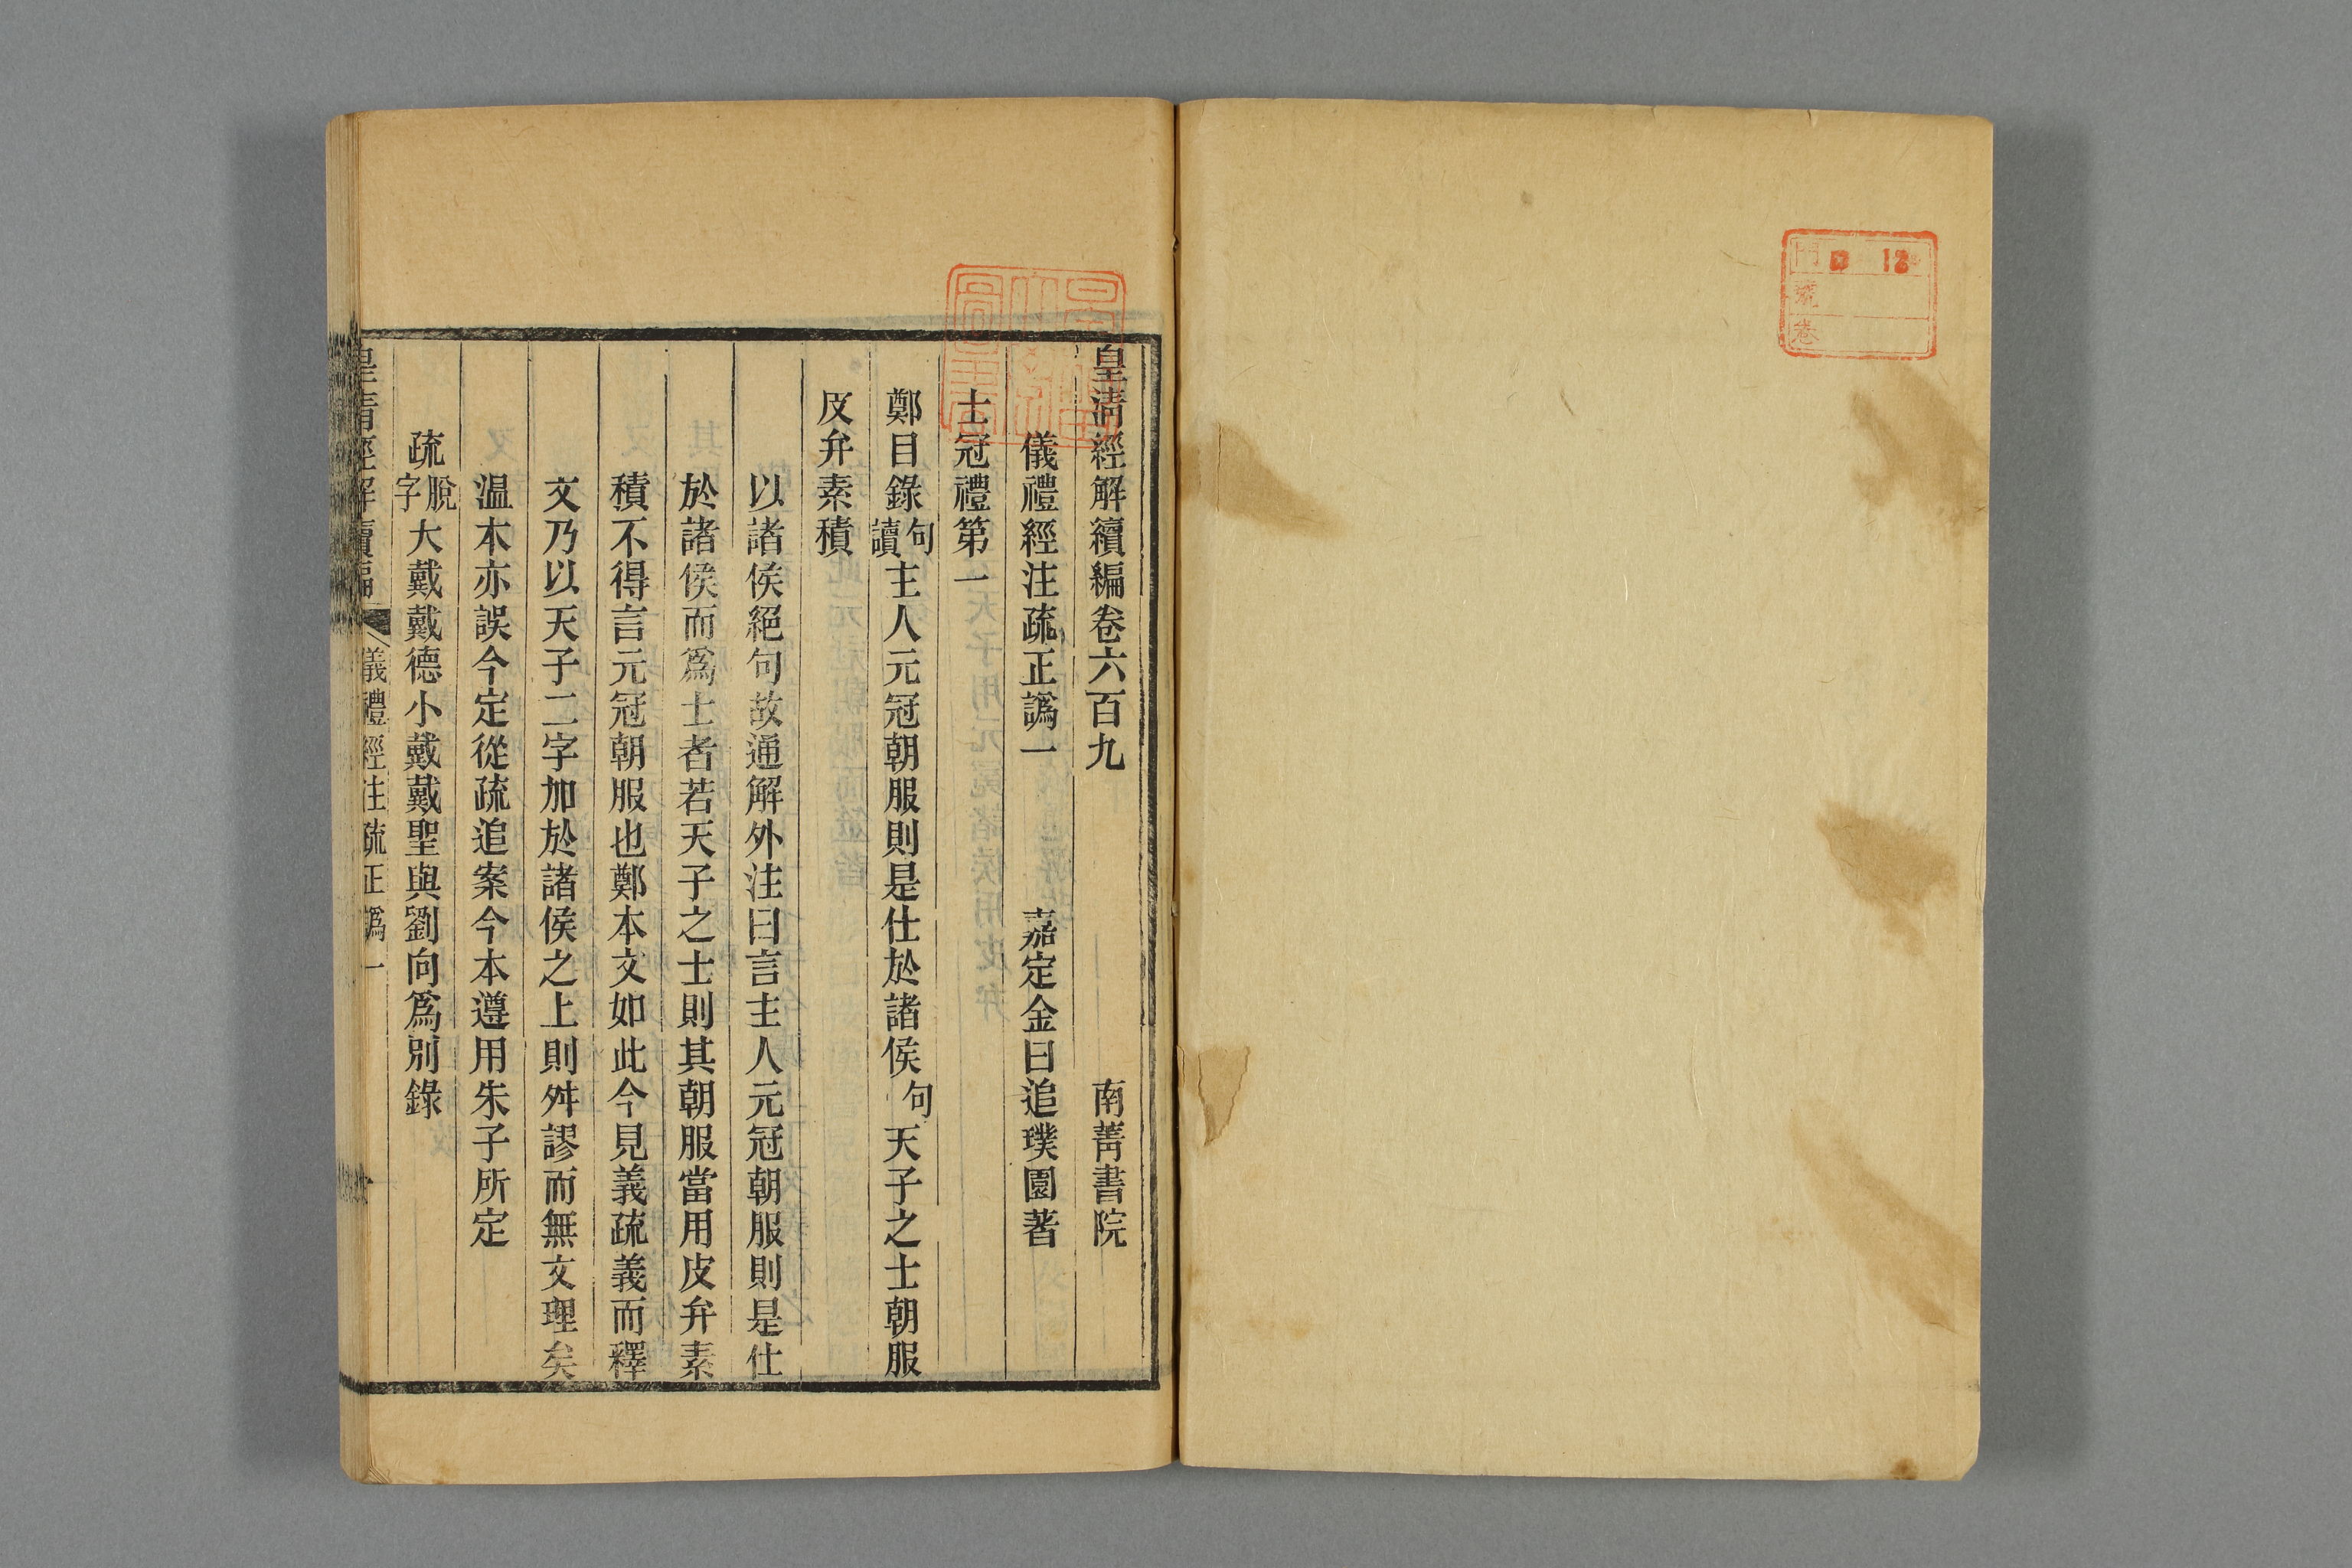 門 ロ 12
號
卷
皇清經解續編卷六百九 南菁書院
儀禮經注疏正譌一 嘉定金曰追璞園著
士冠禮第一
鄭目錄句讀主人元冠朝服則是仕於諸侯句天子之士朝服
皮弁素積
以諸侯絕句故通解外注曰言主人元冠朝服則是仕
於諸侯而爲士者若天子之士則其朝服當用皮弁素
積不得言元冠朝服也鄭本文如此今見義疏義而釋
文乃以天子二字加於諸侯之上則舛謬而無文理矣
温本亦誤今定從疏追案今本遵用朱子所定
疏脫字大戴戴德小戴戴聖與劉向爲別錄
皇清經解續編 儀禮經注疏正譌一